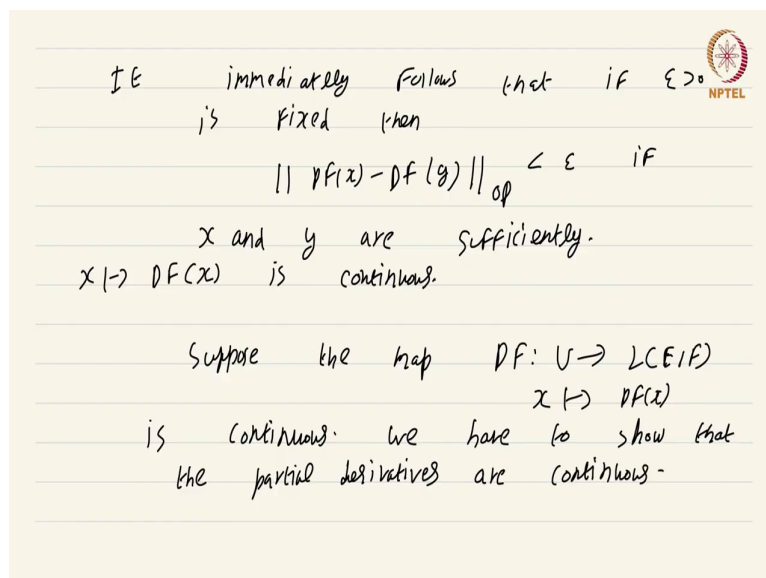 It immediately follows that if ε>0
NPTEL
is fixed then
|| DF(x) - DF(y) ||op < ε if
x and y are sufficiently.
x ↦ DF(x) is continuous.
Suppose the map DF: U → L(E,F)
x ↦ DF(x)
is continuous. We have to show that
the partial derivatives are continuous.